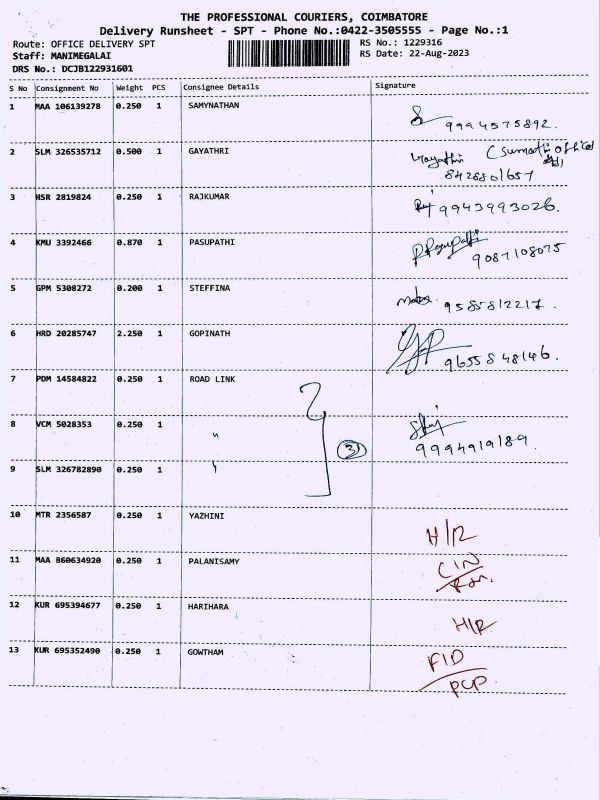 THE PROFESSIONAL COURIERS, COIMBATORE
Delivery Runsheet - SPT - Phone No.:0422-3505555 - Page No.:1
Route: OFFICE DELIVERY SPT
Staff: MANIMEGALAI
DRS No.: DCJB122931601
RS No.: 1229316
RS Date: 22-Aug-2023
S No Consignment No Weight PCS Consignee Details Signature
1 MAA 106139278 0.250 1 SAMYNATHAN
9994575892.
2 SLM 326535712 0.500 1 GAYATHRI Gayathri (Sumathi office
8428801657
3 HSR 2819824 0.250 1 RAJKUMAR 9943993026.
4 KMU 3392466 0.870 1 PASUPATHI
9087108075
5 GPM 5308272 0.200 1 STEFFINA 9585812217.
6 HRD 20285747 2.250 1 GOPINATH
9655848146.
7 PDM 14584822 0.250 1 ROAD LINK
8 VCM 5028353 0.250 1 "
3)
9994919189.
9 SLM 326782890 0.250 1
10 MTR 2356587 0.250 1 YAZHINI
H/R
11 MAA 860634920 0.250 1 PALANISAMY CIN
12 KUR 695394677 0.250 1 HARIHARA
H/R
13 KUR 695352490 0.250 1 GOWTHAM FID
PCP